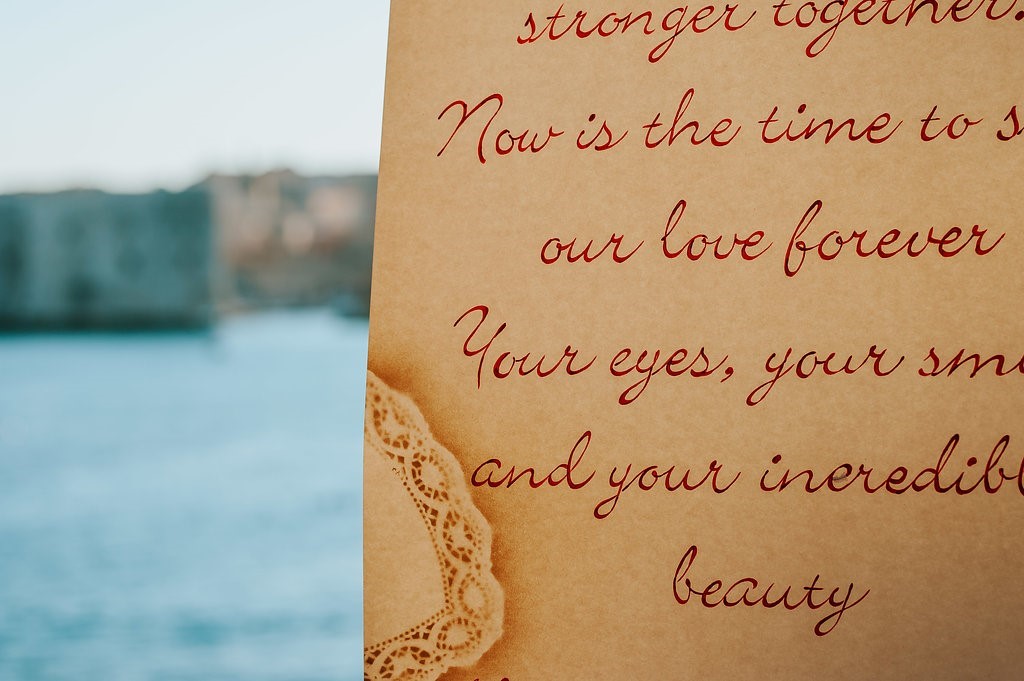 stronger together.
Now is the time to
our love forever
Your eyes, your
and your
beauty